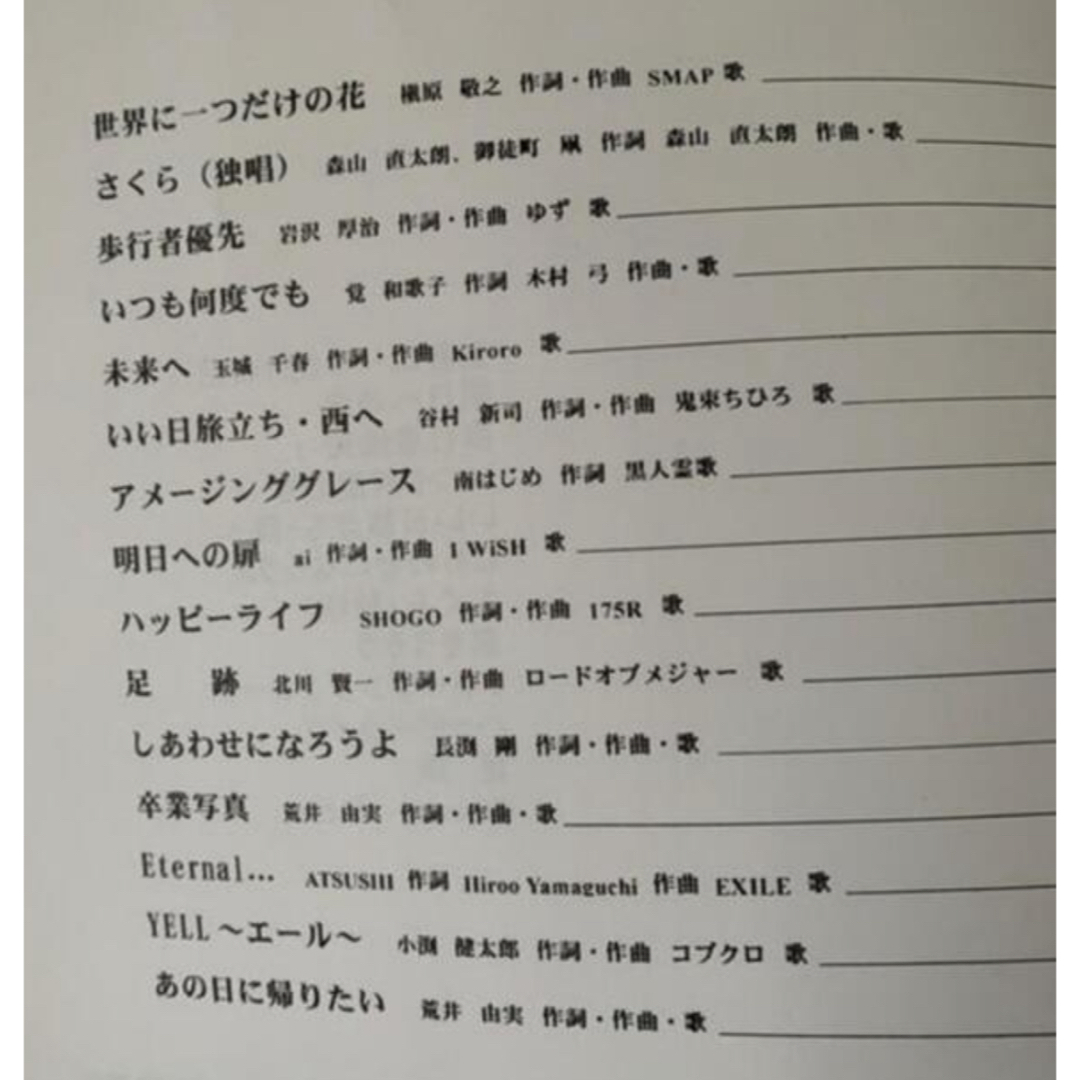 世界に一つだけの花 槇原 敬之 作詞・作曲 SMAP 歌
さくら（独唱） 森山 直太朗、御徒町 凧 作詞 森山 直太朗 作曲・歌
歩行者優先 岩沢 厚治 作詞・作曲 ゆず 歌
いつも何度でも 覚 和歌子 作詞 木村 弓 作曲・歌
未来へ 玉城 千春 作詞・作曲 Kiroro 歌
いい日旅立ち・西へ 谷村 新司 作詞・作曲 鬼束ちひろ 歌
アメージンググレース 南はじめ 作詞 黒人霊歌
明日への扉 ai 作詞・作曲 I WiSH 歌
ハッピーライフ SHOGO 作詞・作曲 175R 歌
足 跡 北川 賢一 作詞・作曲 ロードオブメジャー 歌
しあわせになろうよ 長渕 剛 作詞・作曲・歌
卒業写真 荒井 由実 作詞・作曲・歌
Eternal… ATSUSHI 作詞 Hiroo Yamaguchi 作曲 EXILE 歌
YELL～エール～ 小渕 健太郎 作詞・作曲 コブクロ 歌
あの日に帰りたい 荒井 由実 作詞・作曲・歌